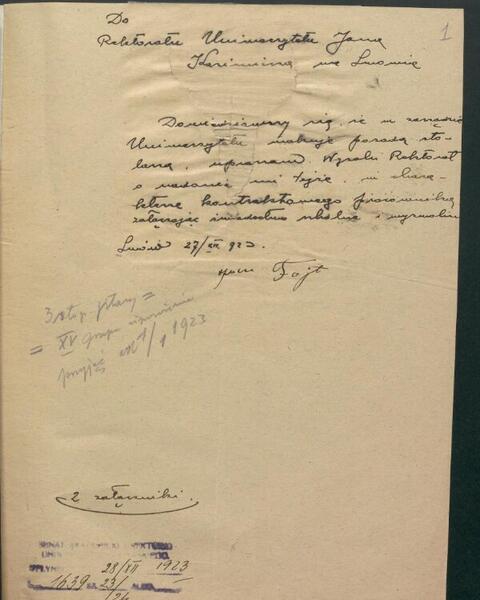 1
Do
Rektoratu Uniwersytetu Jana
Kazimierza we Lwowie
Dowiedziawszy się, że w zarządzie
Uniwersytetu wakuje posada sto-
larza, upraszam Wysoki Rektorat
o nadanie mi tejże, w chara-
kterze kontraktowego pracownika
załączając świadectwo szkolne i wyzwolin
Lwów 27/XII 923.
Fojt
3 stop. płacy =
= XV grupa
przyjąć od 1/1 1923
2 załączniki.
SENAT
28/XII 1923
1639 23/